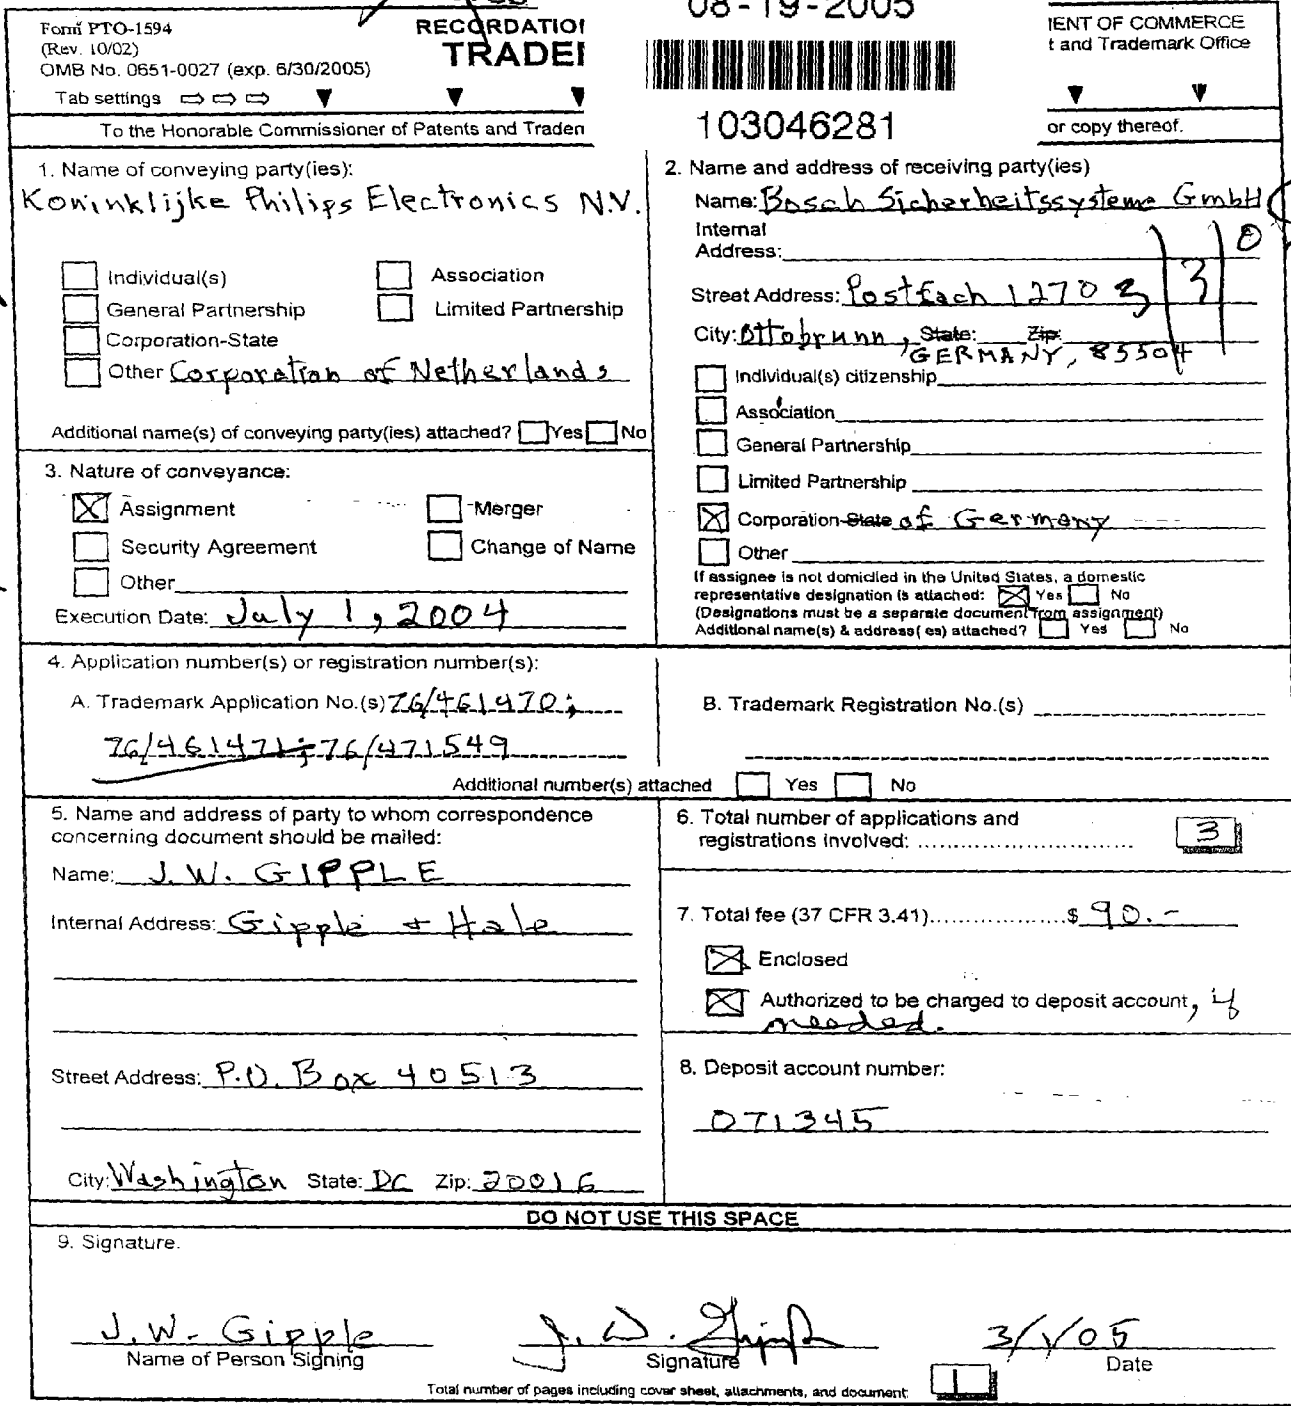 08-19-2005
Form PTO-1594
(Rev. 10/02)
OMB No. 0651-0027 (exp. 6/30/2005)
RECORDATION
TRADE
MENT OF COMMERCE
t and Trademark Office
Tab settings ⇨ ⇨ ⇨ ▼ ▼ ▼ ▼ ▼
103046281
To the Honorable Commissioner of Patents and Tradem
or copy thereof.
1. Name of conveying party(ies):
Koninklijke Philips Electronics N.V.
Individual(s) Association
General Partnership Limited Partnership
Corporation-State
Other Corporation of Netherlands
Additional name(s) of conveying party(ies) attached? Yes No
2. Name and address of receiving party(ies)
Name: Bosch Sicherheitssysteme GmbH
Internal
Address:
Street Address: Postfach 1270
City: Ottobrunn, State: Zip:
GERMANY, 85504
Individual(s) citizenship
Association
General Partnership
Limited Partnership
Corporation-State of Germany
Other
If assignee is not domiciled in the United States, a domestic
representative designation is attached: Yes No
(Designations must be a separate document from assignment)
Additional name(s) & address( es) attached? Yes No
3. Nature of conveyance:
Assignment Merger
Security Agreement Change of Name
Other
Execution Date: July 1, 2004
4. Application number(s) or registration number(s):
A. Trademark Application No.(s) 76/461470;
76/461471; 76/471549
B. Trademark Registration No.(s)
Additional number(s) attached Yes No
5. Name and address of party to whom correspondence
concerning document should be mailed:
Name: J.W. GIPPLE
Internal Address: Gipple + Hale
Street Address: P.O. Box 40513
City: Washington State: DC Zip: 20016
6. Total number of applications and
registrations involved: 3
7. Total fee (37 CFR 3.41)....................$ 90.-
Enclosed
Authorized to be charged to deposit account, if
needed.
8. Deposit account number:
071345
DO NOT USE THIS SPACE
9. Signature.
J.W. Gipple J. W. Gipple 3/1/05
Name of Person Signing Signature Date
Total number of pages including cover sheet, attachments, and document: 1